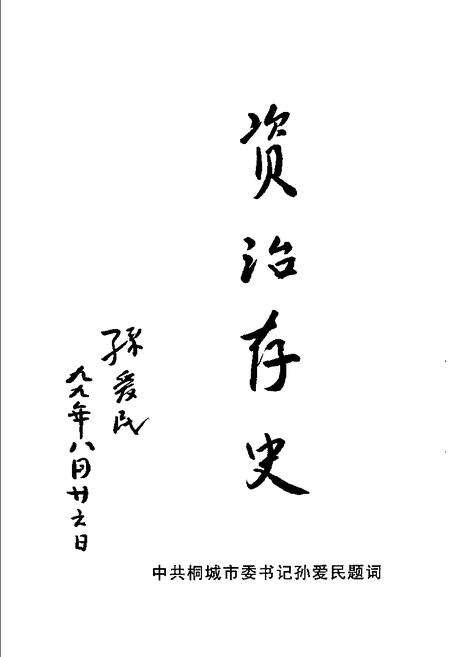 资治存史
孙爱民
九九年八月廿六日
中共桐城市委书记孙爱民题词